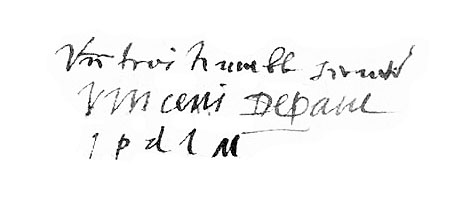 Vre trés humble servite
Vincent Depaul
i p d l M